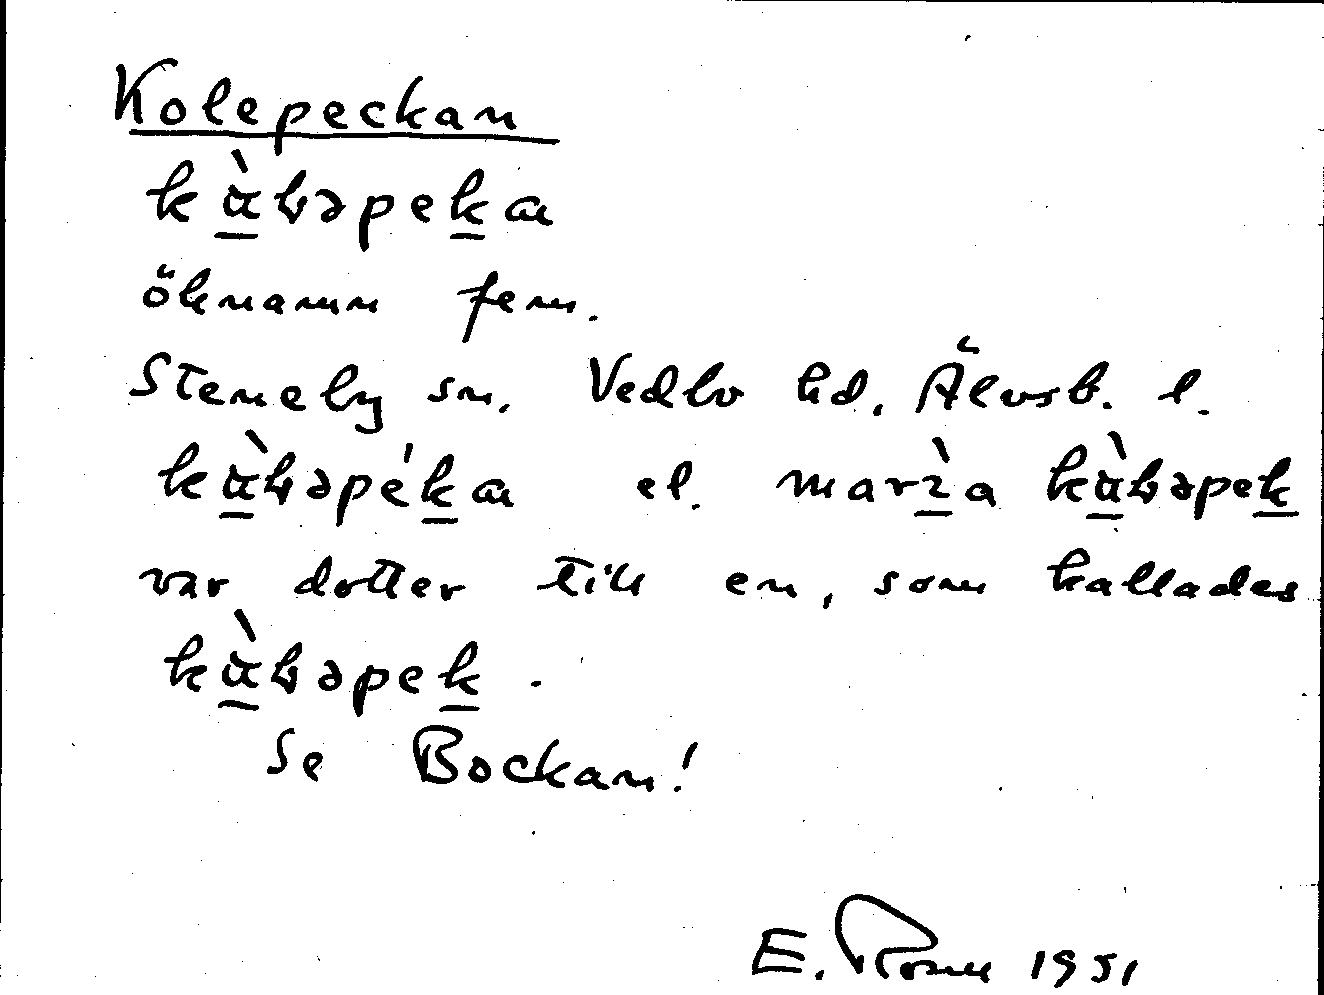 Kolepeckan
kàɫəpeka
öknamn fem.
Steneby sn. Vedbo hd. Älvsb. l.
kàɫəpéka el. marìa kàɫəpek
var dotter till en, som kallades
kàɫəpek.
Se Bockan!
E. 1951